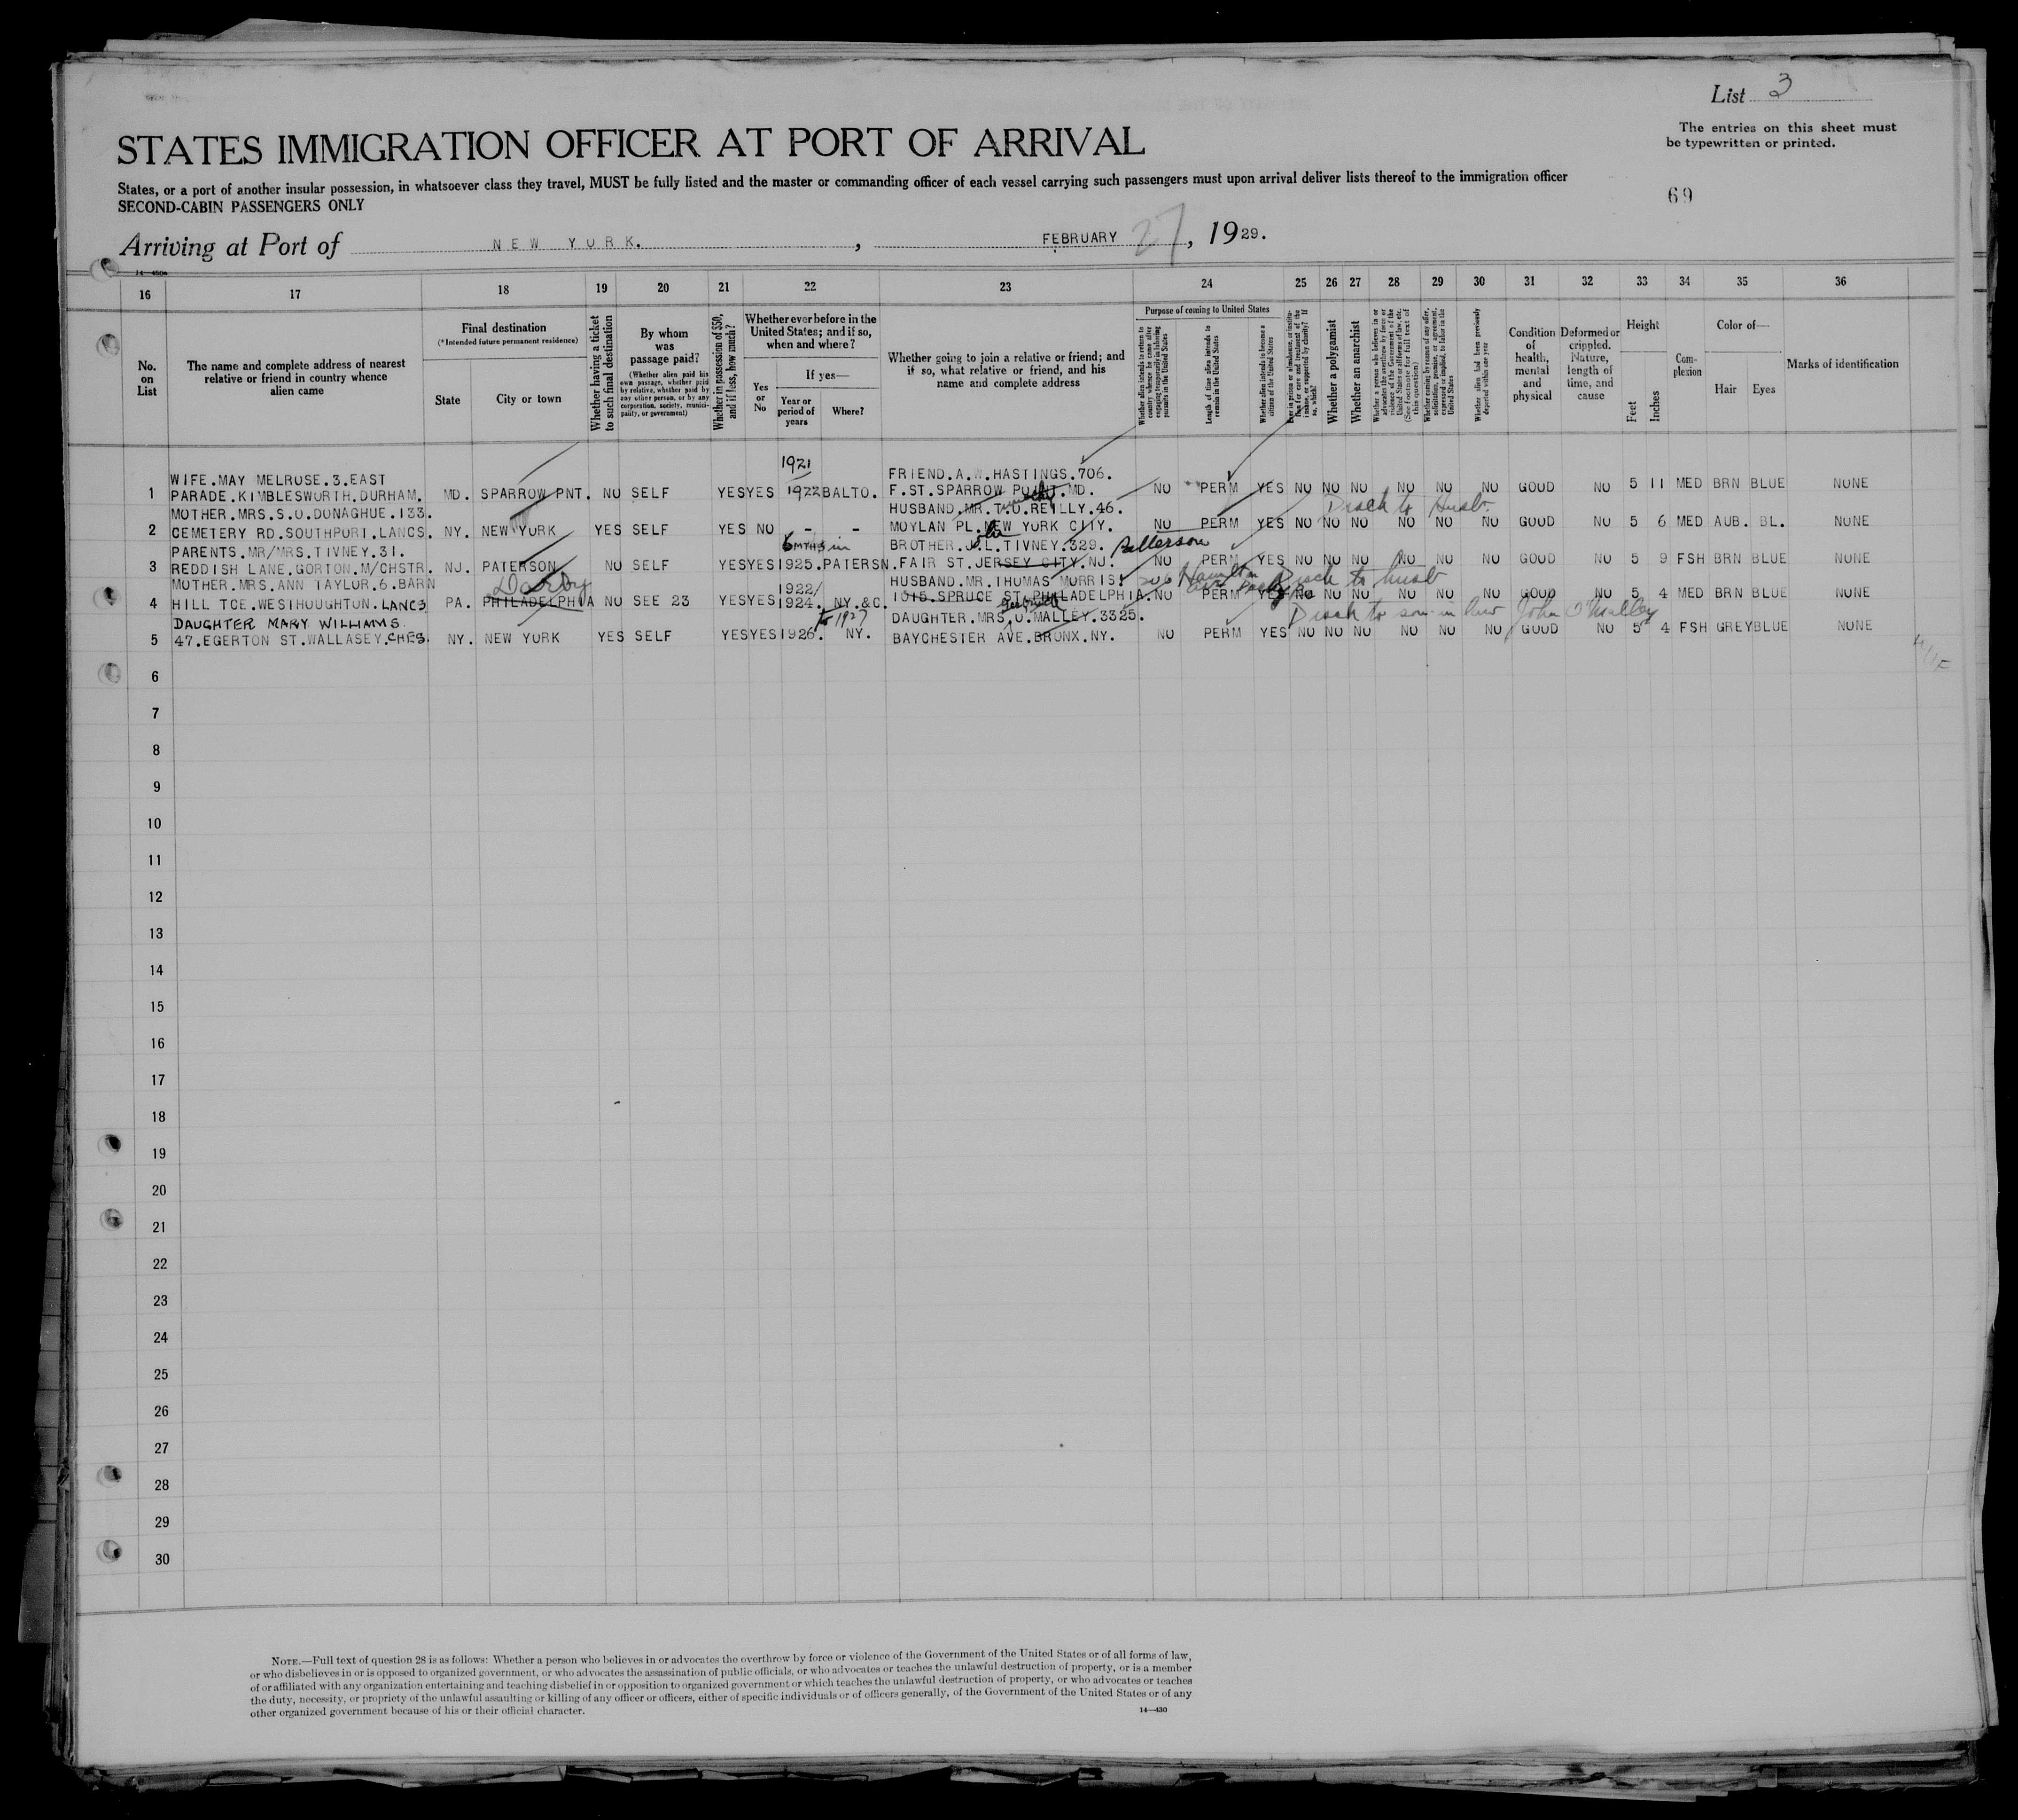 List 3
The entries on this sheet must
be typewritten or printed.
STATES IMMIGRATION OFFICER AT PORT OF ARRIVAL
States, or a port of another insular possession, in whatsoever class they travel, MUST be fully listed and the master or commanding officer of each vessel carrying such passengers must upon arrival deliver lists thereof to the immigration officer
SECOND-CABIN PASSENGERS ONLY
69
Arriving at Port of NEW YORK. , FEBRUARY 27, 1929.
16 17 18 19 20 21 22 23 24 25 26 27 28 29 30 31 32 33 34 35 36
No. on List
The name and complete address of nearest relative or friend in country whence alien came
Final destination
(*Intended future permanent residence)
State
City or town
Whether having a ticket to such final destination
By whom was passage paid?
(Whether alien paid his own passage, whether paid by relative, whether paid by any other person, or by any corporation, society, municipality, or government)
Whether in possession of $50, and if less, how much?
Whether ever before in the United States; and if so, when and where?
Yes or No
If yes—
Year or period of years
Where?
Whether going to join a relative or friend; and if so, what relative or friend, and his name and complete address
Purpose of coming to United States
Whether alien intends to return to country whence he came after engaging temporarily in laboring pursuits in the United States
Length of time alien intends to remain in the United States
Whether alien intends to become a citizen of the United States
Whether a polygamist
Whether an anarchist
Condition of health, mental and physical
Deformed or crippled. Nature, length of time, and cause
Height
Feet
Inches
Complexion
Color of—
Hair
Eyes
Marks of identification
1921
WIFE.MAY MELROSE.3.EAST FRIEND.A.W.HASTINGS.706.
1 PARADE.KIMBLESWORTH.DURHAM. MD. SPARROW PNT. NO SELF YES YES 1922 BALTO. F.ST.SPARROW POINT.MD. NO PERM YES NO NO NO NO NO NO GOOD NO 5 11 MED BRN BLUE NONE
MOTHER.MRS.S.O.DONAGHUE.133. HUSBAND.MR.T.O.REILLY.46. Disch to Husb.
2 CEMETERY RD.SOUTHPORT.LANCS. NY. NEW YORK YES SELF YES NO - - MOYLAN PL.NEW YORK CITY. NO PERM YES NO NO NO NO NO NO GOOD NO 5 6 MED AUB. BL. NONE
PARENTS.MR/MRS.TIVNEY.31. 6 MTHS in BROTHER.J.L.TIVNEY.329. Patterson
3 REDDISH LANE.GORTON.M/CHSTR. NJ. PATERSON NO SELF YES YES 1925. PATERSN. FAIR ST.JERSEY CITY.NJ. NO PERM YES NO NO NO NO NO NO GOOD NO 5 9 FSH BRN BLUE NONE
MOTHER.MRS.ANN TAYLOR.6.BARN Darby 1922/ HUSBAND.MR.THOMAS MORRIS. 206 Hamilton Disch to husb
4 HILL TCE.WESTHOUGHTON.LANCS PA. PHILADELPHIA NO SEE 23 YES YES 1924. NY.&C. 1015.SPRUCE ST.PHILADELPHIA. NO PERM YES NO NO NO NO NO NO GOOD NO 5 4 MED BRN BLUE NONE
DAUGHTER MARY WILLIAMS. to 1927 DAUGHTER.MRS.O.MALLEY.3325. Disch to son-in law John O'Malley
5 47.EGERTON ST.WALLASEY.CHES. NY. NEW YORK YES SELF YES YES 1926. NY. BAYCHESTER AVE.BRONX.NY. NO PERM YES NO NO NO NO NO NO GOOD NO 5 4 FSH GREY BLUE NONE
6
7
8
9
10
11
12
13
14
15
16
17
18
19
20
21
22
23
24
25
26
27
28
29
30
NOTE.—Full text of question 28 is as follows: Whether a person who believes in or advocates the overthrow by force or violence of the Government of the United States or of all forms of law,
or who disbelieves in or is opposed to organized government, or who advocates the assassination of public officials, or who advocates or teaches the unlawful destruction of property, or is a member
of or affiliated with any organization entertaining and teaching disbelief in or opposition to organized government or which teaches the unlawful destruction of property, or who advocates or teaches
the duty, necessity, or propriety of the unlawful assaulting or killing of any officer or officers, either of specific individuals or of officers generally, of the Government of the United States or of any
other organized government because of his or their official character.
14—430